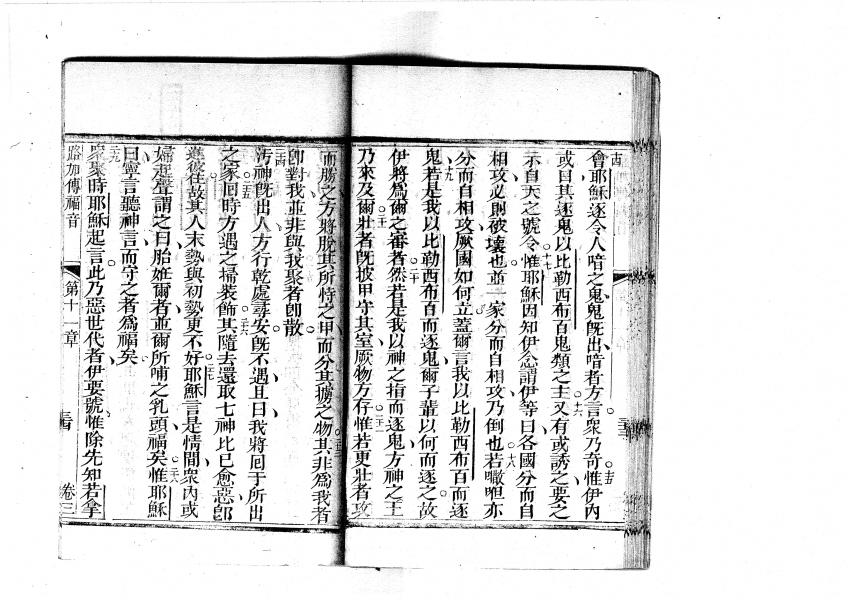 古
會耶穌逐令人喑之鬼鬼既出喑者方言衆乃奇惟伊內
或曰其逐鬼以比勒西布百鬼類之主又有或誘之要之
示自天之號令惟耶穌因知伊念謂伊等曰各國分而自
相攻必則破壞也並一家分而自相攻乃倒也若𠹌呾亦
分而自相攻厥國如何立蓋爾言我以比勒西布百而逐
鬼若是我以比勒西布百而逐鬼爾子輩以何而逐之故
伊將爲爾之審者然若是我以神之指而逐鬼方神之王
乃來及爾壯者既披甲守其室厥物方存惟若更壯者攻
而勝之方將脫其所恃之甲而分其擄之物其非爲我者
卽對我並非與我聚者卽散
汚神既出人方行乾處尋安既不遇且曰我將囘于所出
之家囘時方遇之掃裝飾其隨去還取七神比已愈惡卽
進從住故其人末勢與初勢更不好耶穌言是情間衆內或
婦起聲謂之曰胎妊爾者並爾所哺之乳頭福矣惟耶穌
曰寧言聽神言而守之者爲福矣
衆聚時耶穌起言此乃惡世代者伊要號惟除先知若拿
路加傳福音
第十一章
卷三